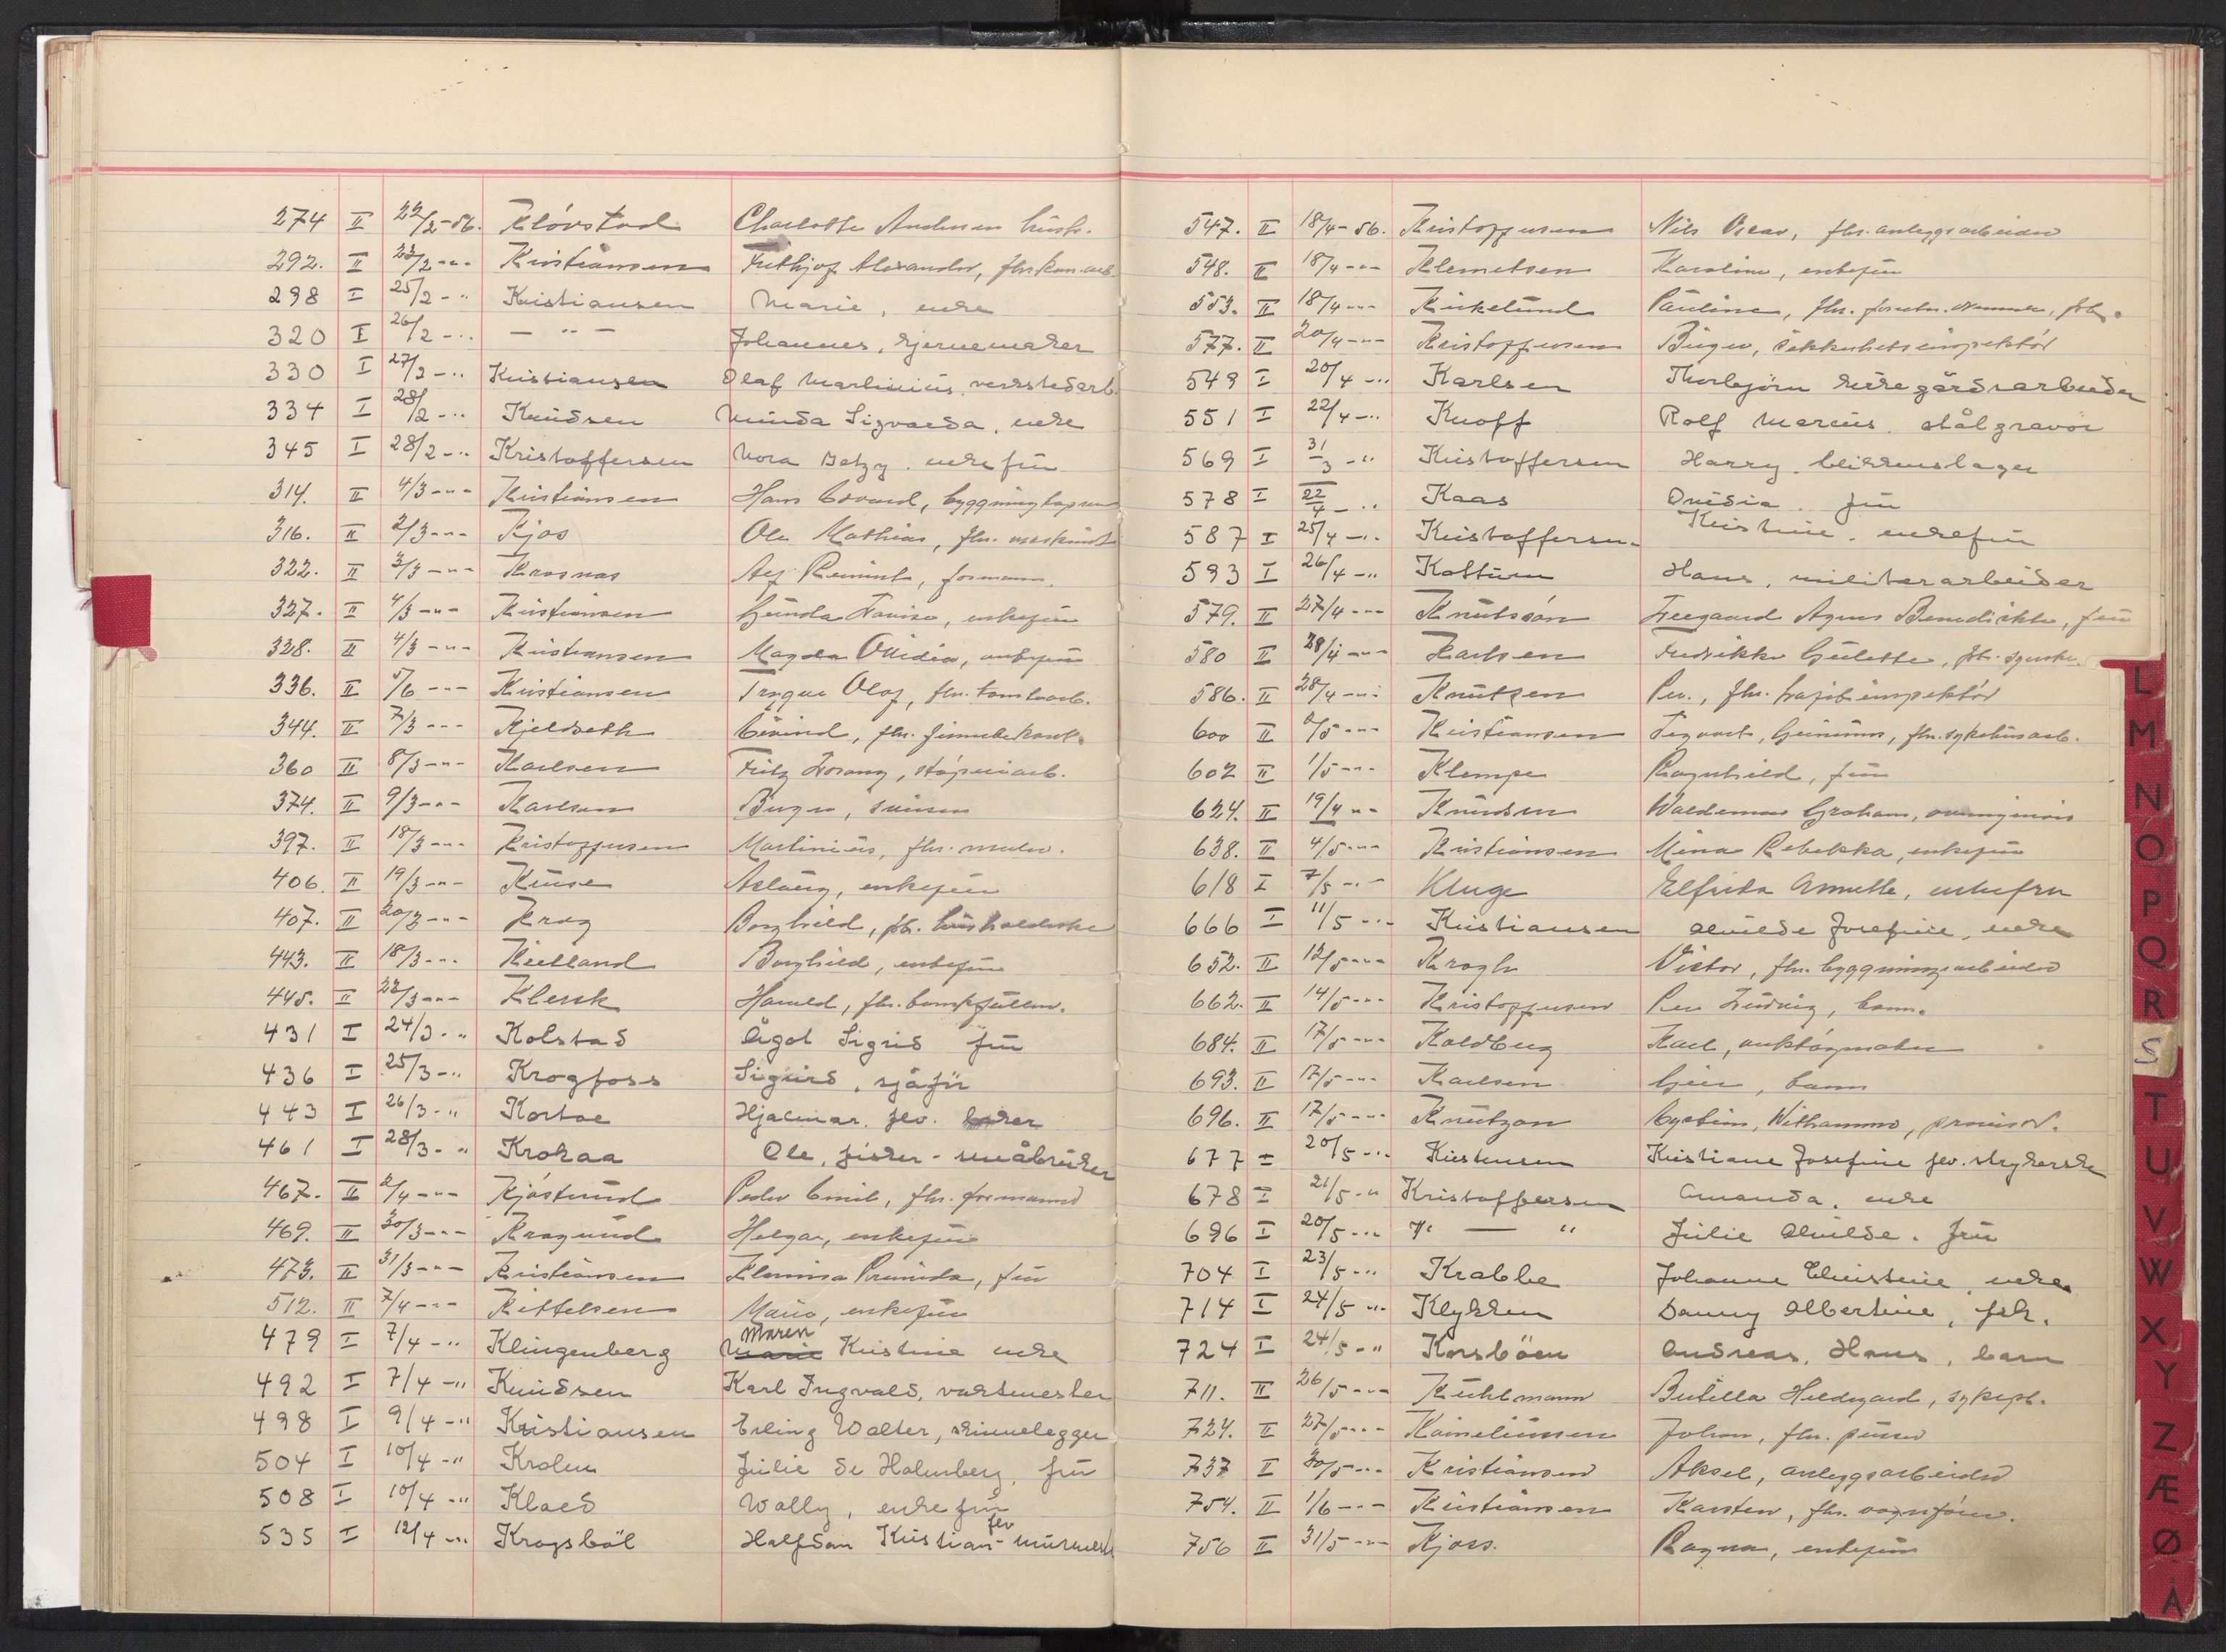 274 II 22/2-56. Klövstad Charlotte Andersen hustr.
292. II 23/2 -"- Kristiansen Frithjof Alexander, fhv. kom.arb.
298 I 25/2 -" Kristiansen Marie, enke
320 I 26/2 -" — " — Johannes, hjernemaker
330 I 27/2 -" Kristiansen Olaf Martinius. verkstedarb.
334 I 28/2 -" Knudsen Minda Sigvarda. enke
345 I 28/2 -" Kristoffersen Nora Betzy. enkefru
314. II 4/3 -"- Kristiansen Hans Edvard,
316. II 2/3 -"- Kjos Ole Mathias, fhv. maskinist
322. II 3/3 -"- Krosnas Alf Reminh, formann.
327. II 4/3 -"- Kristiansen Gunda Lovise, enkefru
328. II 4/3 -"- Kristiansen Magda Ovidia, enkefru
336. II 5/6 -"- Kristiansen Trygve Olaf, fhv. tomtearb.
344. II 7/3 -"- Kjeldseth Eivind, fhv.
360 II 8/3 -"- Karlsen Fritz Lorang, støperiarb.
374. II 9/3 -"- Karlsen Birger, snekker
397. II 18/3 -"- Kristoffersen Martinius, fhv. maler.
406. II 19/3 -"- Kruse Aslaug, enkefru
407. II 20/3 -"- Krog Borghild, fh. husholderske
443. II 18/3 -"- Kielland Borghild, enkefru
445. II 23/3 -"- Klenk Harald, fhv.
431 I 24/3 -" Kolstad Ågot Sigrid fru
436 I 25/3 -" Krogfoss Sigurd, sjåfør
443 I 26/3 -" Kortoe Hjalmar. fev.
461 I 28/3 -" Krokaa Ole, fisker - småbruker
467. II 2/4 -"- Kjøstrud Peder Emil, fhv. formann
469. II 30/3 -"- Kragrud Helga, enkefru
473. II 31/3 -"- Kristiansen Klemina Prunida, fru
512. II 7/4 -"- Kittelsen Marie, enkefru
Maren
479 I 7/4 -" Klingenberg Marie Kristine enke
492 I 7/4 -" Knudsen Karl Ingvald, vaktmester
498 I 9/4 -" Kristiansen Erling Walter, skinnelegger
504 I 10/4 -" Krolen Julie de Holmberg, fru
508 I 10/4 -" Klaed Wally, enkefru
fev
535 I 12/4 -" Kragsböl Halfdan Kristian - murmester
547. II 18/4-56. Kristoffersen Nils Oscar, fhv. anleggsarbeider
548. II 18/4 -"- Klemetsen Karoline, enkefru
553. II 18/4 -"- Kirkelund Pauline, fhv.
577. II 20/4 -"- Kristoffersen Birger, sikkerhetsinspektör
549 I 20/4 -" Karlsen Thorbjörn kirkegårdsarbeider
551 I 22/4 -" Knoff Rolf Marcus. stålgravör
569 I 31/3 -" Kristoffersen Harry. blikkenslager
578 I 22/4 -" Kaas Ovidia. fru
587 I 25/4 -" Kristoffersen Kristine. enkefru
593 I 26/4 -" Koltum Hans, militærarbeider
579. II 27/4 -"- Knutssön Feegaard Agnes Benedikte, fru
580 II 28/4 -"- Karlsen Fredrikke Gulette, fh.
586. II 28/4 -"- Knutzen Per, fhv. trafikinspektör
600 II 2/5 -"- Kristiansen Sigvart, Grinum, fhv. sykehusarb.
602 II 1/5 -"- Klempe Ragnhild, fru
624. II 19/4 -"- Knudsen Waldemar Graham, overingeniör
638. II 4/5 -"- Kristiansen Mina Rebekka, enkefru
618 I 7/5 -" Kluge Elfrida Annette, enkefru
666 I 11/5 -" Kristiansen Alvilde Josefine, enke
652. II 12/5 -"- Krogh Victor, fhv. bygningsarbeider
662. II 14/5 -"- Kristoffersen Per Ludvig, barn.
684. II 17/5 -"- Koldberg Karl,
693. II 17/5 -"- Karlsen Geir, barn
696. II 17/5 -"- Knutzon Eystein, Withammer, provisor.
677 I 20/5 -" Kristensen Kristiane Josefine fev. strykerske
678 I 21/5 -" Kristoffersen Amanda. enke
696 I 20/5 -" " — " Julie Alvilde. fru
704 I 23/5 -" Krabbe Johanne Christine, enke
714 I 24/5 -" Klykken Danny Albertine, frk.
724 I 24/5 -" Korsböen Andreas, Hans, barn
711. II 26/5 -"- Kühlmann Butilla Hildegard, sykepl.
724. II 27/5 -"- Korneliussen Johan, fhv. pusser
737 II 30/5 -"- Kristiansen Aksel, anleggsarbeider
754. II 1/6 -"- Kristiansen Karsten, fhv. vognfører.
756 II 31/5 -"- Kjoss. Ragna, enkefru
L
M
N
O
P
Q
R
S
T
U
V
W
X
Y
Z
Æ
Ø
Å